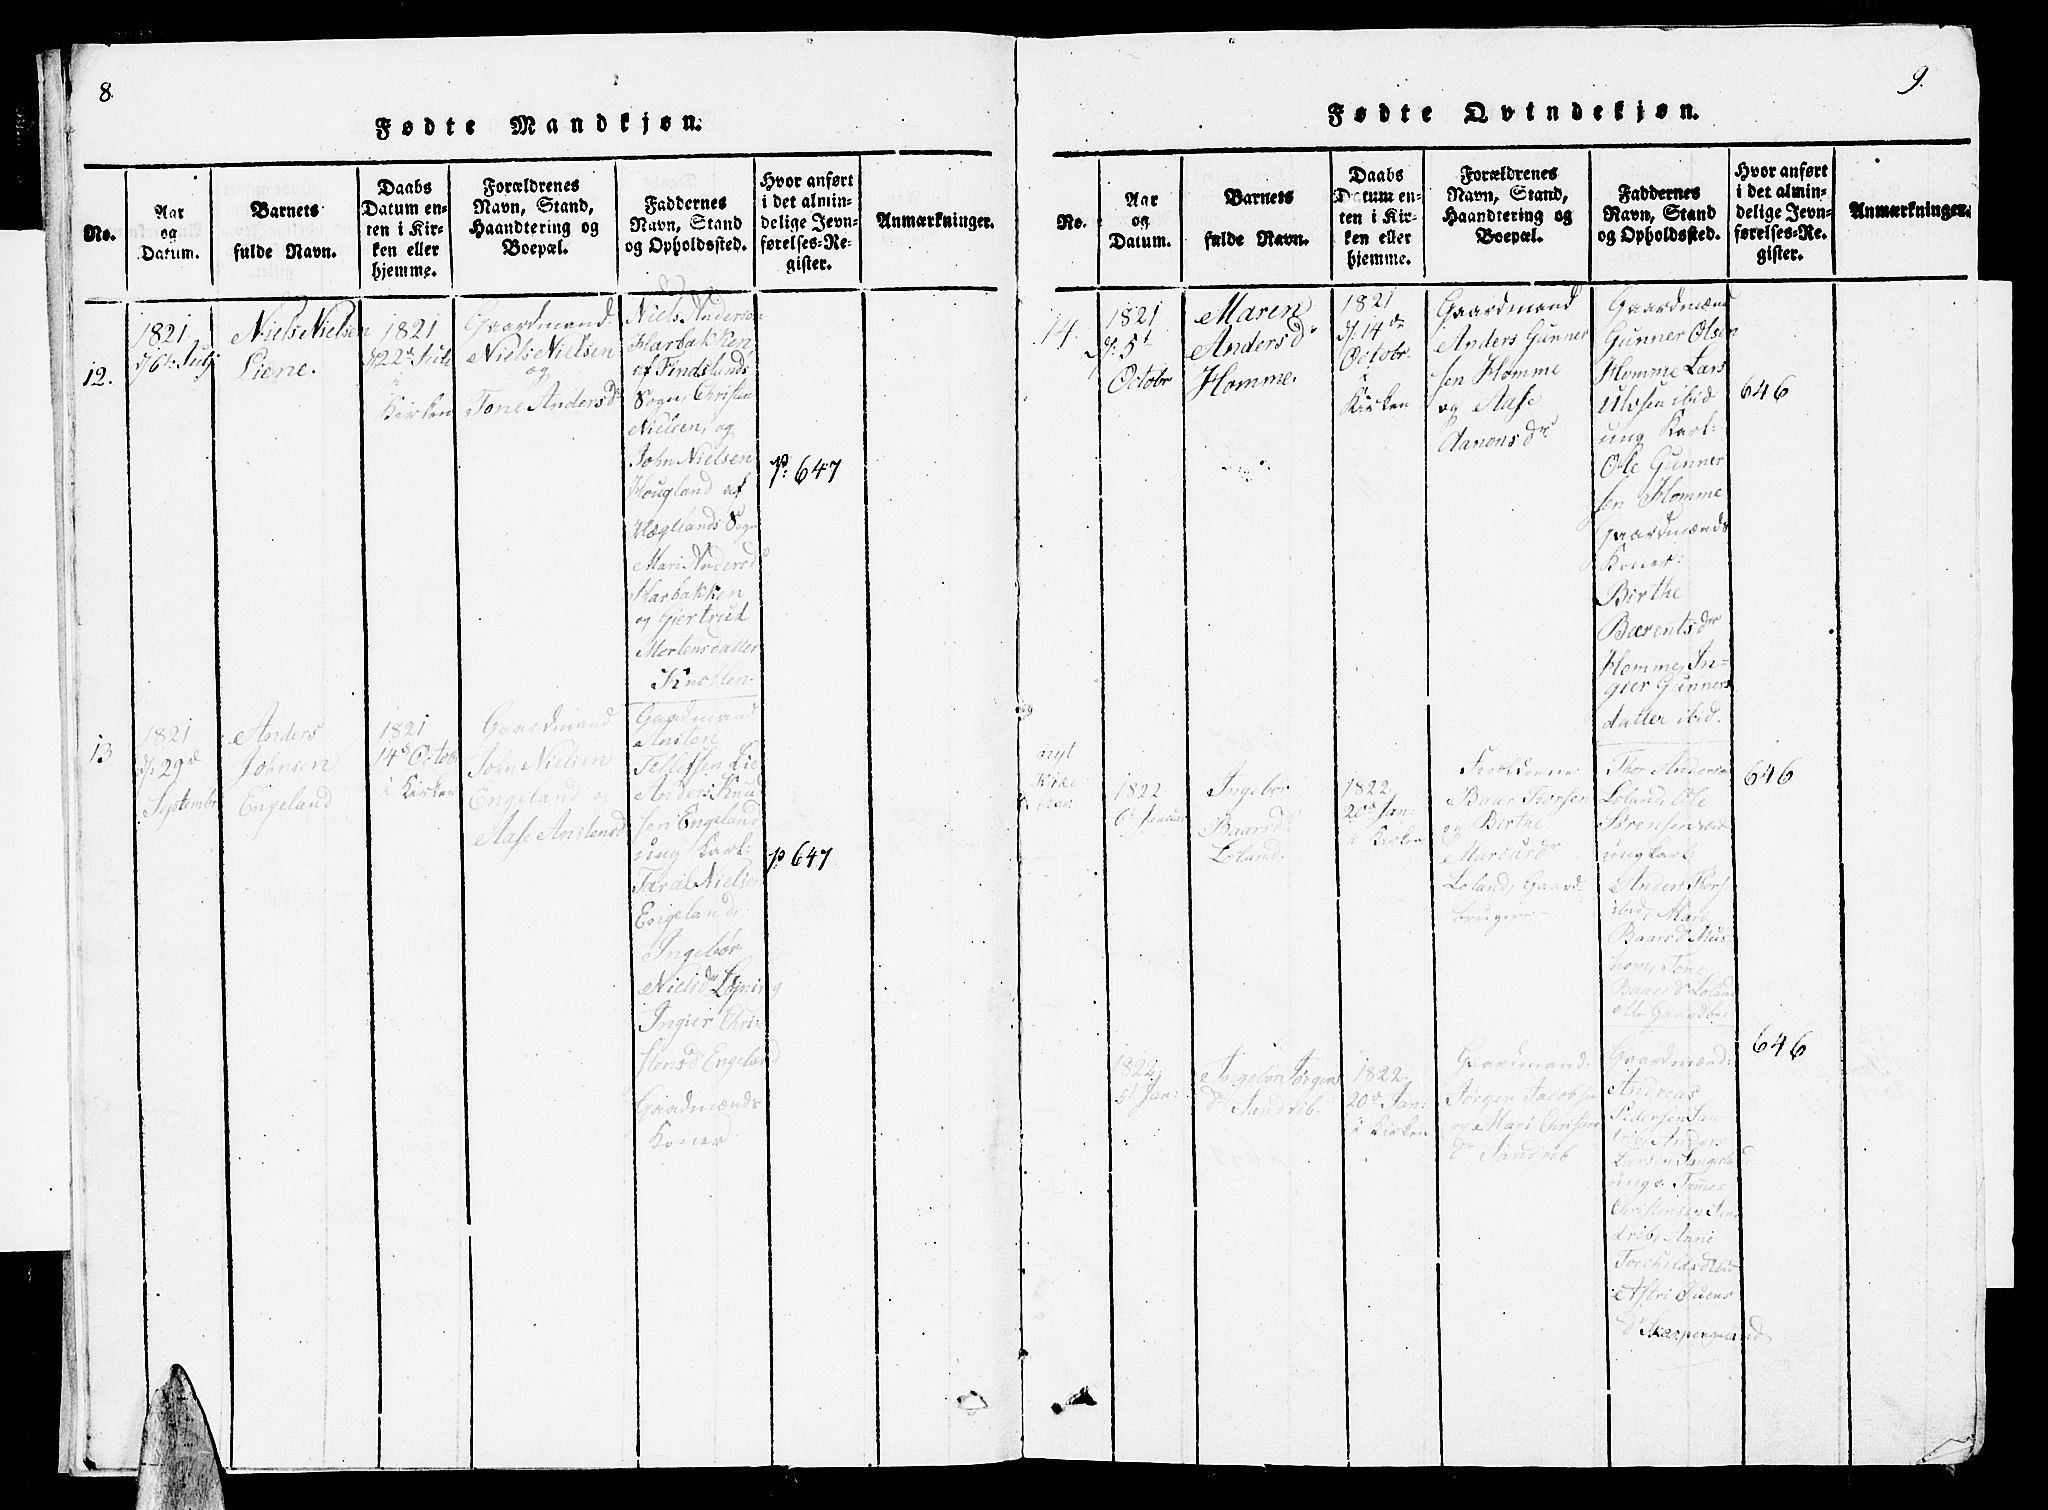 8
Fødte Mandkjøn.
No.
Aar
og
Datum.
Barnets
fulde Navn.
Daabs
Datum en-
ten i Kir-
ken eller
hjemme.
Forældrenes
Navn, Stand,
Haandtering og
Boepæl.
Faddernes
Navn, Stand
og Opholdssted.
Hvor anført
i det almin-
delige Jevn-
førelses-Re-
gister.
Anmærkninger.
12.
1821
Niels Nielsen
Liene.
1821
Kirken
Gaardmand
Niels Nielsen
og
Tone Andersdr
Niels Anderson
Harbakken
af Findslands
Sogn, Christen
Nielsen, og
John Nielsen
Hougland af
Hæglands Sogn
Mari Andersd
Harbakken
og Gjertrut
Mortensdatter
p: 647
13
1821
29d
Septembr
Anders
Johnsen
Engeland
1821
14d Octobr
i Kirken
Gaardmand
John Nielsen
Engeland og
Aase Anstensd
Gaardmand
Ansten
Tellefsen Lie
Anders Knud
sen Engeland
ung Karl:
Taral Nielsen
Engeland,
Ingebor
Nielsdr
Ingier Chri-
stensd Engeland
Gaadmænds
Koner
p 647
9.
Fødte Qvindekjøn.
No.
Aar
og
Datum.
Barnets
fulde Navn.
Daabs
Datum en-
ten i Kir-
ken eller
hjemme.
Forældrenes
Navn, Stand,
Haandtering og
Boepæl.
Faddernes
Navn, Stand
og Opholdssted.
Hvor anført
i det almin-
delige Jevn-
førelses-Re-
gister.
Anmærkninger.
14.
1821
5t
Octobr
Maren
Andersdr
Homme.
1821
14de
Octobr.
i
Kirken
Gaardmand
Anders Gunner
sen Homme
og Aase
Aanonsdr
Gaardmænd
Gunner Olsen
Homme Lars
Ulvsen ibid
ung Karl:
Ole Gunner
sen Homme
Gaardmænds
Koner:
Birthe
Bærentsdr
Homme, In-
gier Gunners
datter ibid.
646
nyt
1822
6t Januar
Ingebor
Baarsdr
Loland.
1822
20d Jan:
i Kirken
Forældrene
Baar Thorsen
og Birthe
Loland, Gaard-
brugere
Thor Anders
Loland, Ole
Sørensen ibid
ung Karl:
Anders Thors
ibid, Mari
Tone
Baarsdr Loland
646
1822
Jan:
Ingebor Jørgens
dr Sandrib.
1822
20d Jan:
i Kirken
Gaardmand
Jørgen Jacobsen
og Mari Christens
dr Sandrib
Gaardmænd:
Andreas
Pedersen San
drib, Anders
Larsen
Christensen San
drib, Anni
646